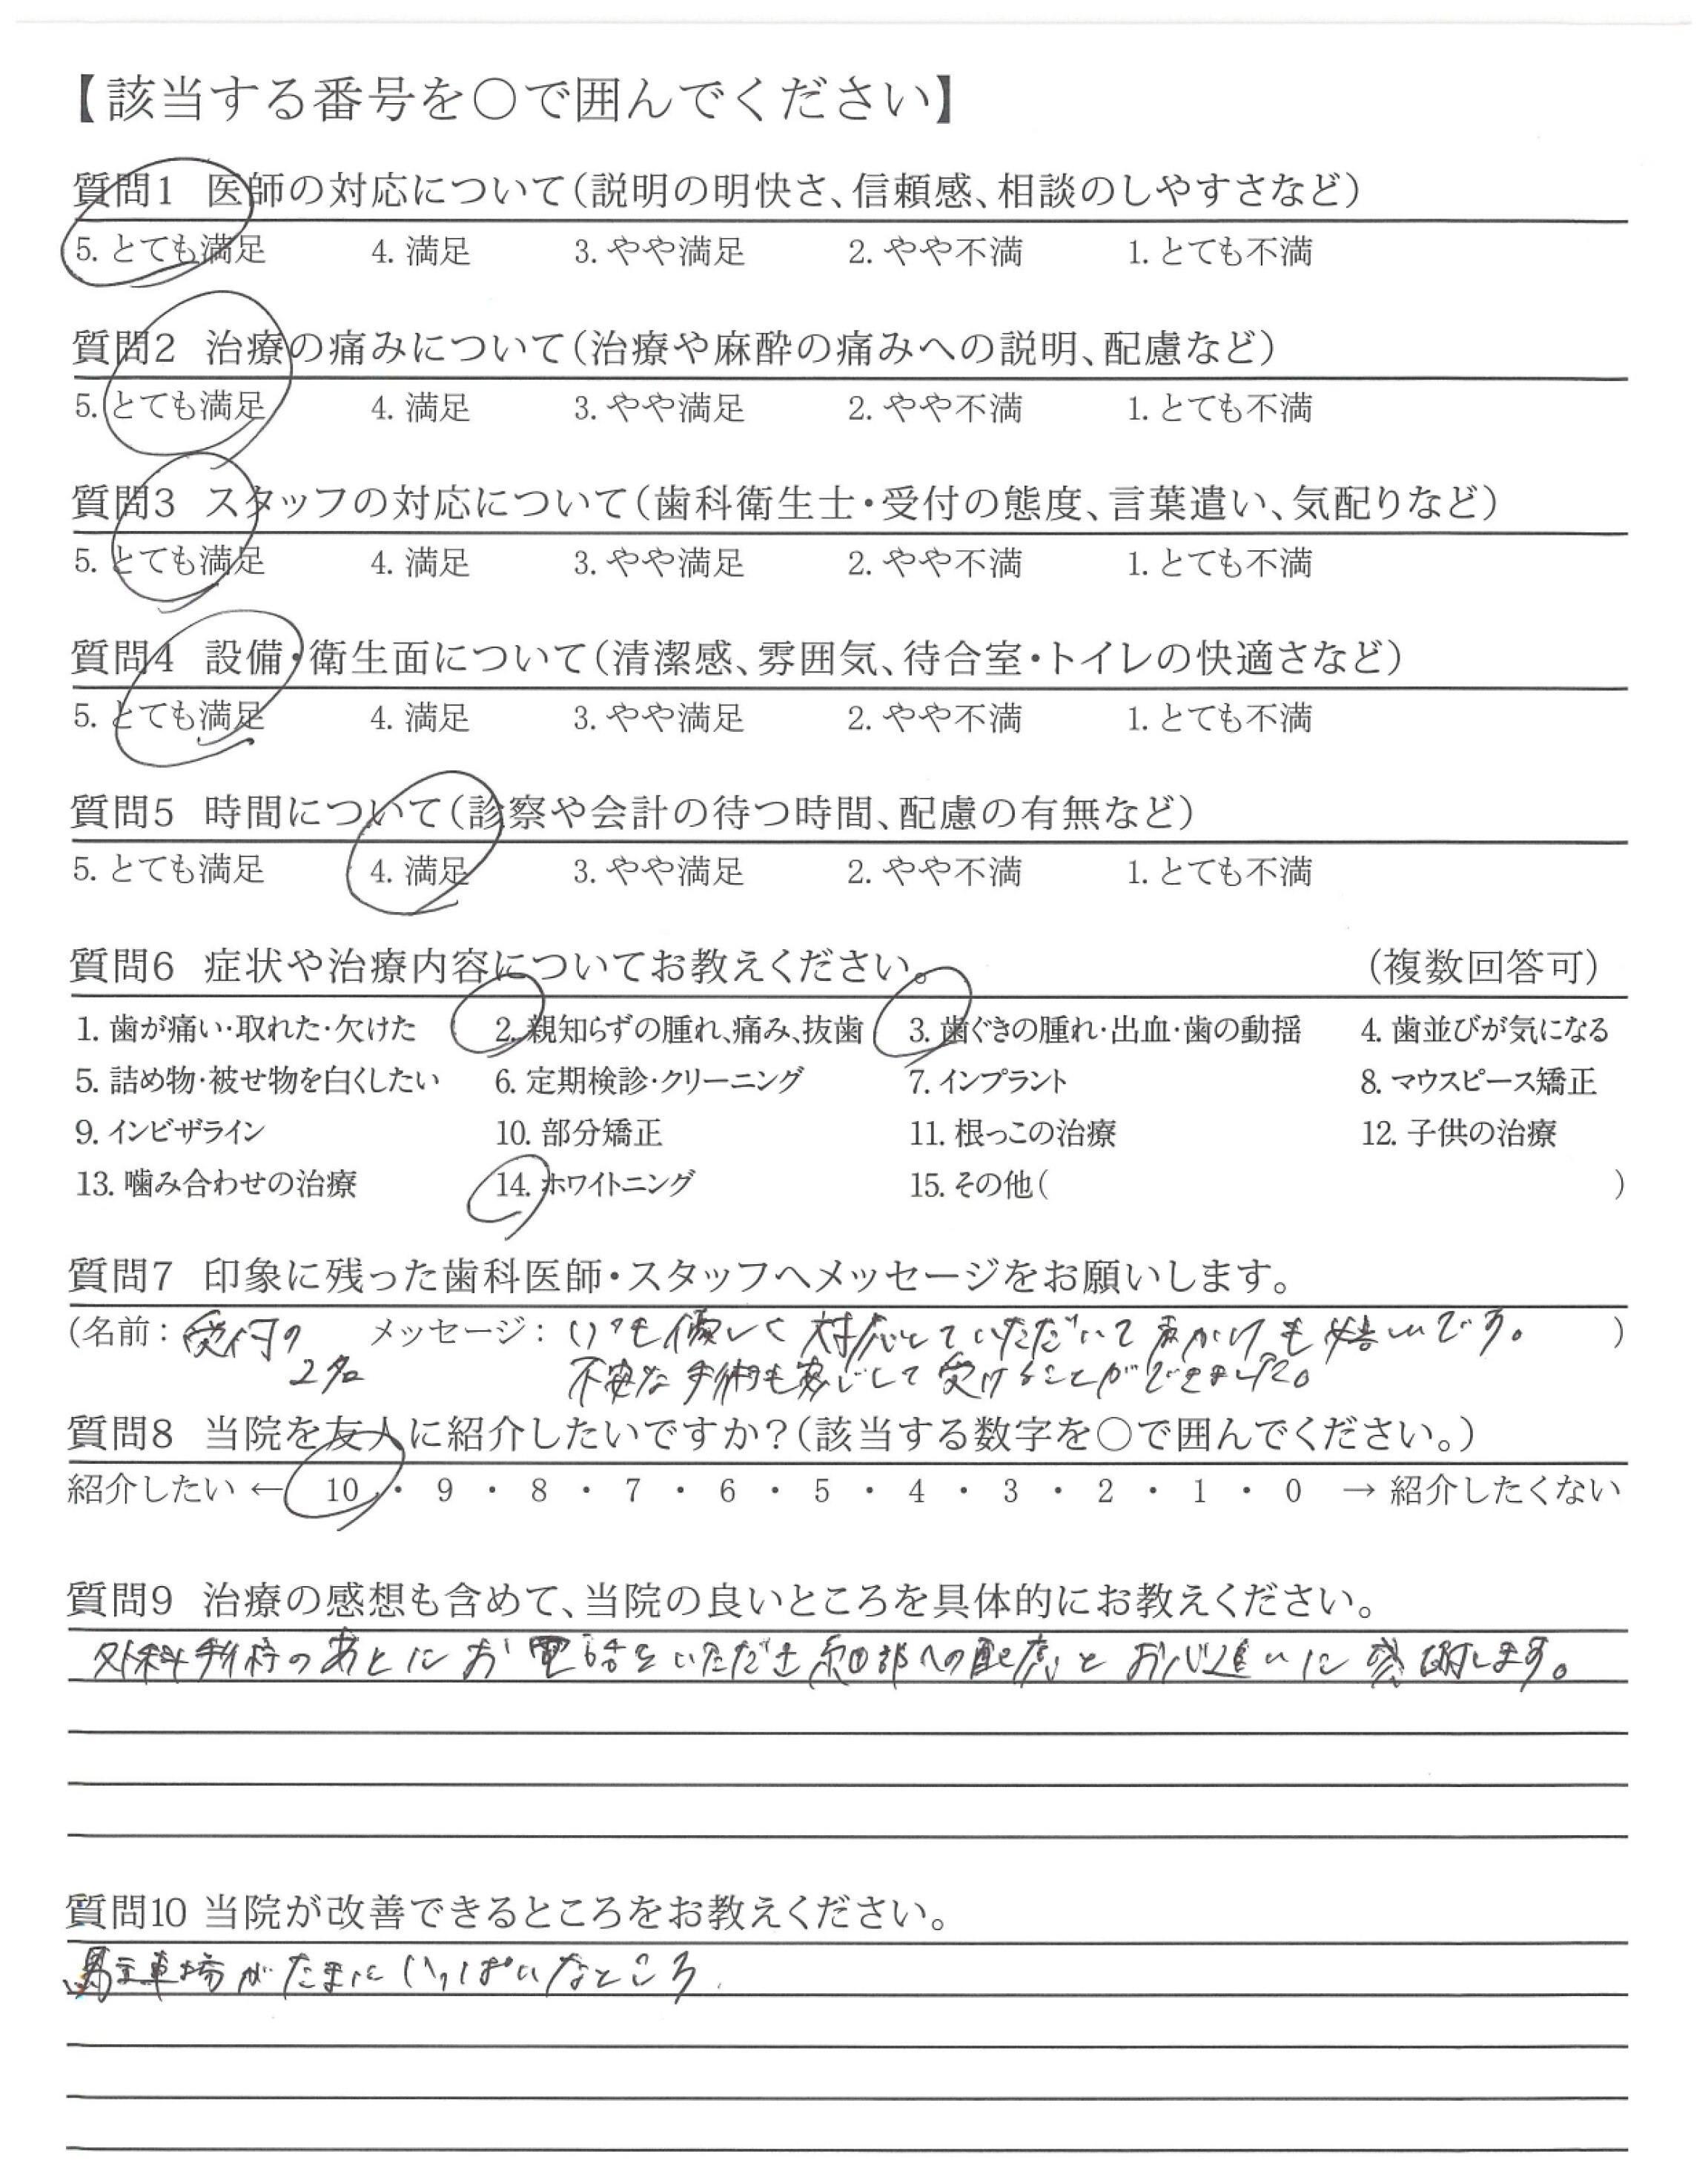 【該当する番号を○で囲んでください】
質問1 医師の対応について(説明の明快さ、信頼感、相談のしやすさなど)
5. とても満足 4. 満足 3. やや満足 2. やや不満 1. とても不満
質問2 治療の痛みについて(治療や麻酔の痛みへの説明、配慮など)
5. とても満足 4. 満足 3. やや満足 2. やや不満 1. とても不満
質問3 スタッフの対応について(歯科衛生士・受付の態度、言葉遣い、気配りなど)
5. とても満足 4. 満足 3. やや満足 2. やや不満 1. とても不満
質問4 設備・衛生面について(清潔感、雰囲気、待合室・トイレの快適さなど)
5. とても満足 4. 満足 3. やや満足 2. やや不満 1. とても不満
質問5 時間について(診察や会計の待つ時間、配慮の有無など)
5. とても満足 4. 満足 3. やや満足 2. やや不満 1. とても不満
質問6 症状や治療内容についてお教えください。 (複数回答可)
1. 歯が痛い・取れた・欠けた 2. 親知らずの腫れ、痛み、抜歯 3. 歯ぐきの腫れ・出血・歯の動揺 4. 歯並びが気になる
5. 詰め物・被せ物を白くしたい 6. 定期検診・クリーニング 7. インプラント 8. マウスピース矯正
9. インビザライン 10. 部分矯正 11. 根っこの治療 12. 子供の治療
13. 噛み合わせの治療 14. ホワイトニング 15. その他( )
質問7 印象に残った歯科医師・スタッフへメッセージをお願いします。
(名前: 受付の メッセージ: いつも優しく対応していただいて声かけも嬉しいです。 )
2名 不安な手術も安心して受けることができました。
質問8 当院を友人に紹介したいですか?(該当する数字を○で囲んでください。)
紹介したい ← 10 ・ 9 ・ 8 ・ 7 ・ 6 ・ 5 ・ 4 ・ 3 ・ 2 ・ 1 ・ 0 → 紹介したくない
質問9 治療の感想も含めて、当院の良いところを具体的にお教えください。
外科手術のあとにお電話をいただき細部への配慮とお心遣いに感謝します。
質問10 当院が改善できるところをお教えください。
駐車場がたまにいっぱいなところ